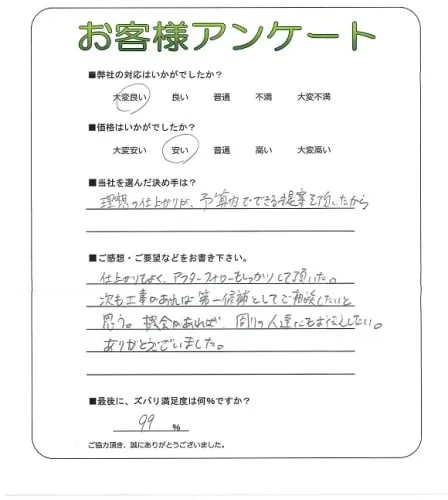 お客様アンケート
■弊社の対応はいかがでしたか?
大変良い 良い 普通 不満 大変不満
■価格はいかがでしたか?
大変安い 安い 普通 高い 大変高い
■当社を選んだ決め手は?
理想の仕上がりが、予算内でできる提案を頂したから
■ご感想・ご要望などをお書き下さい。
仕上がりもよく、アフターフォローもしっかりして頂いた。
次も工事があれば第一候補としてご相談したいと
思う。機会があれば、周りの人達にもお伝えしたい。
ありがとうございました。
■最後に、ズバリ満足度は何%ですか?
99 %
ご協力頂き、誠にありがとうございました。